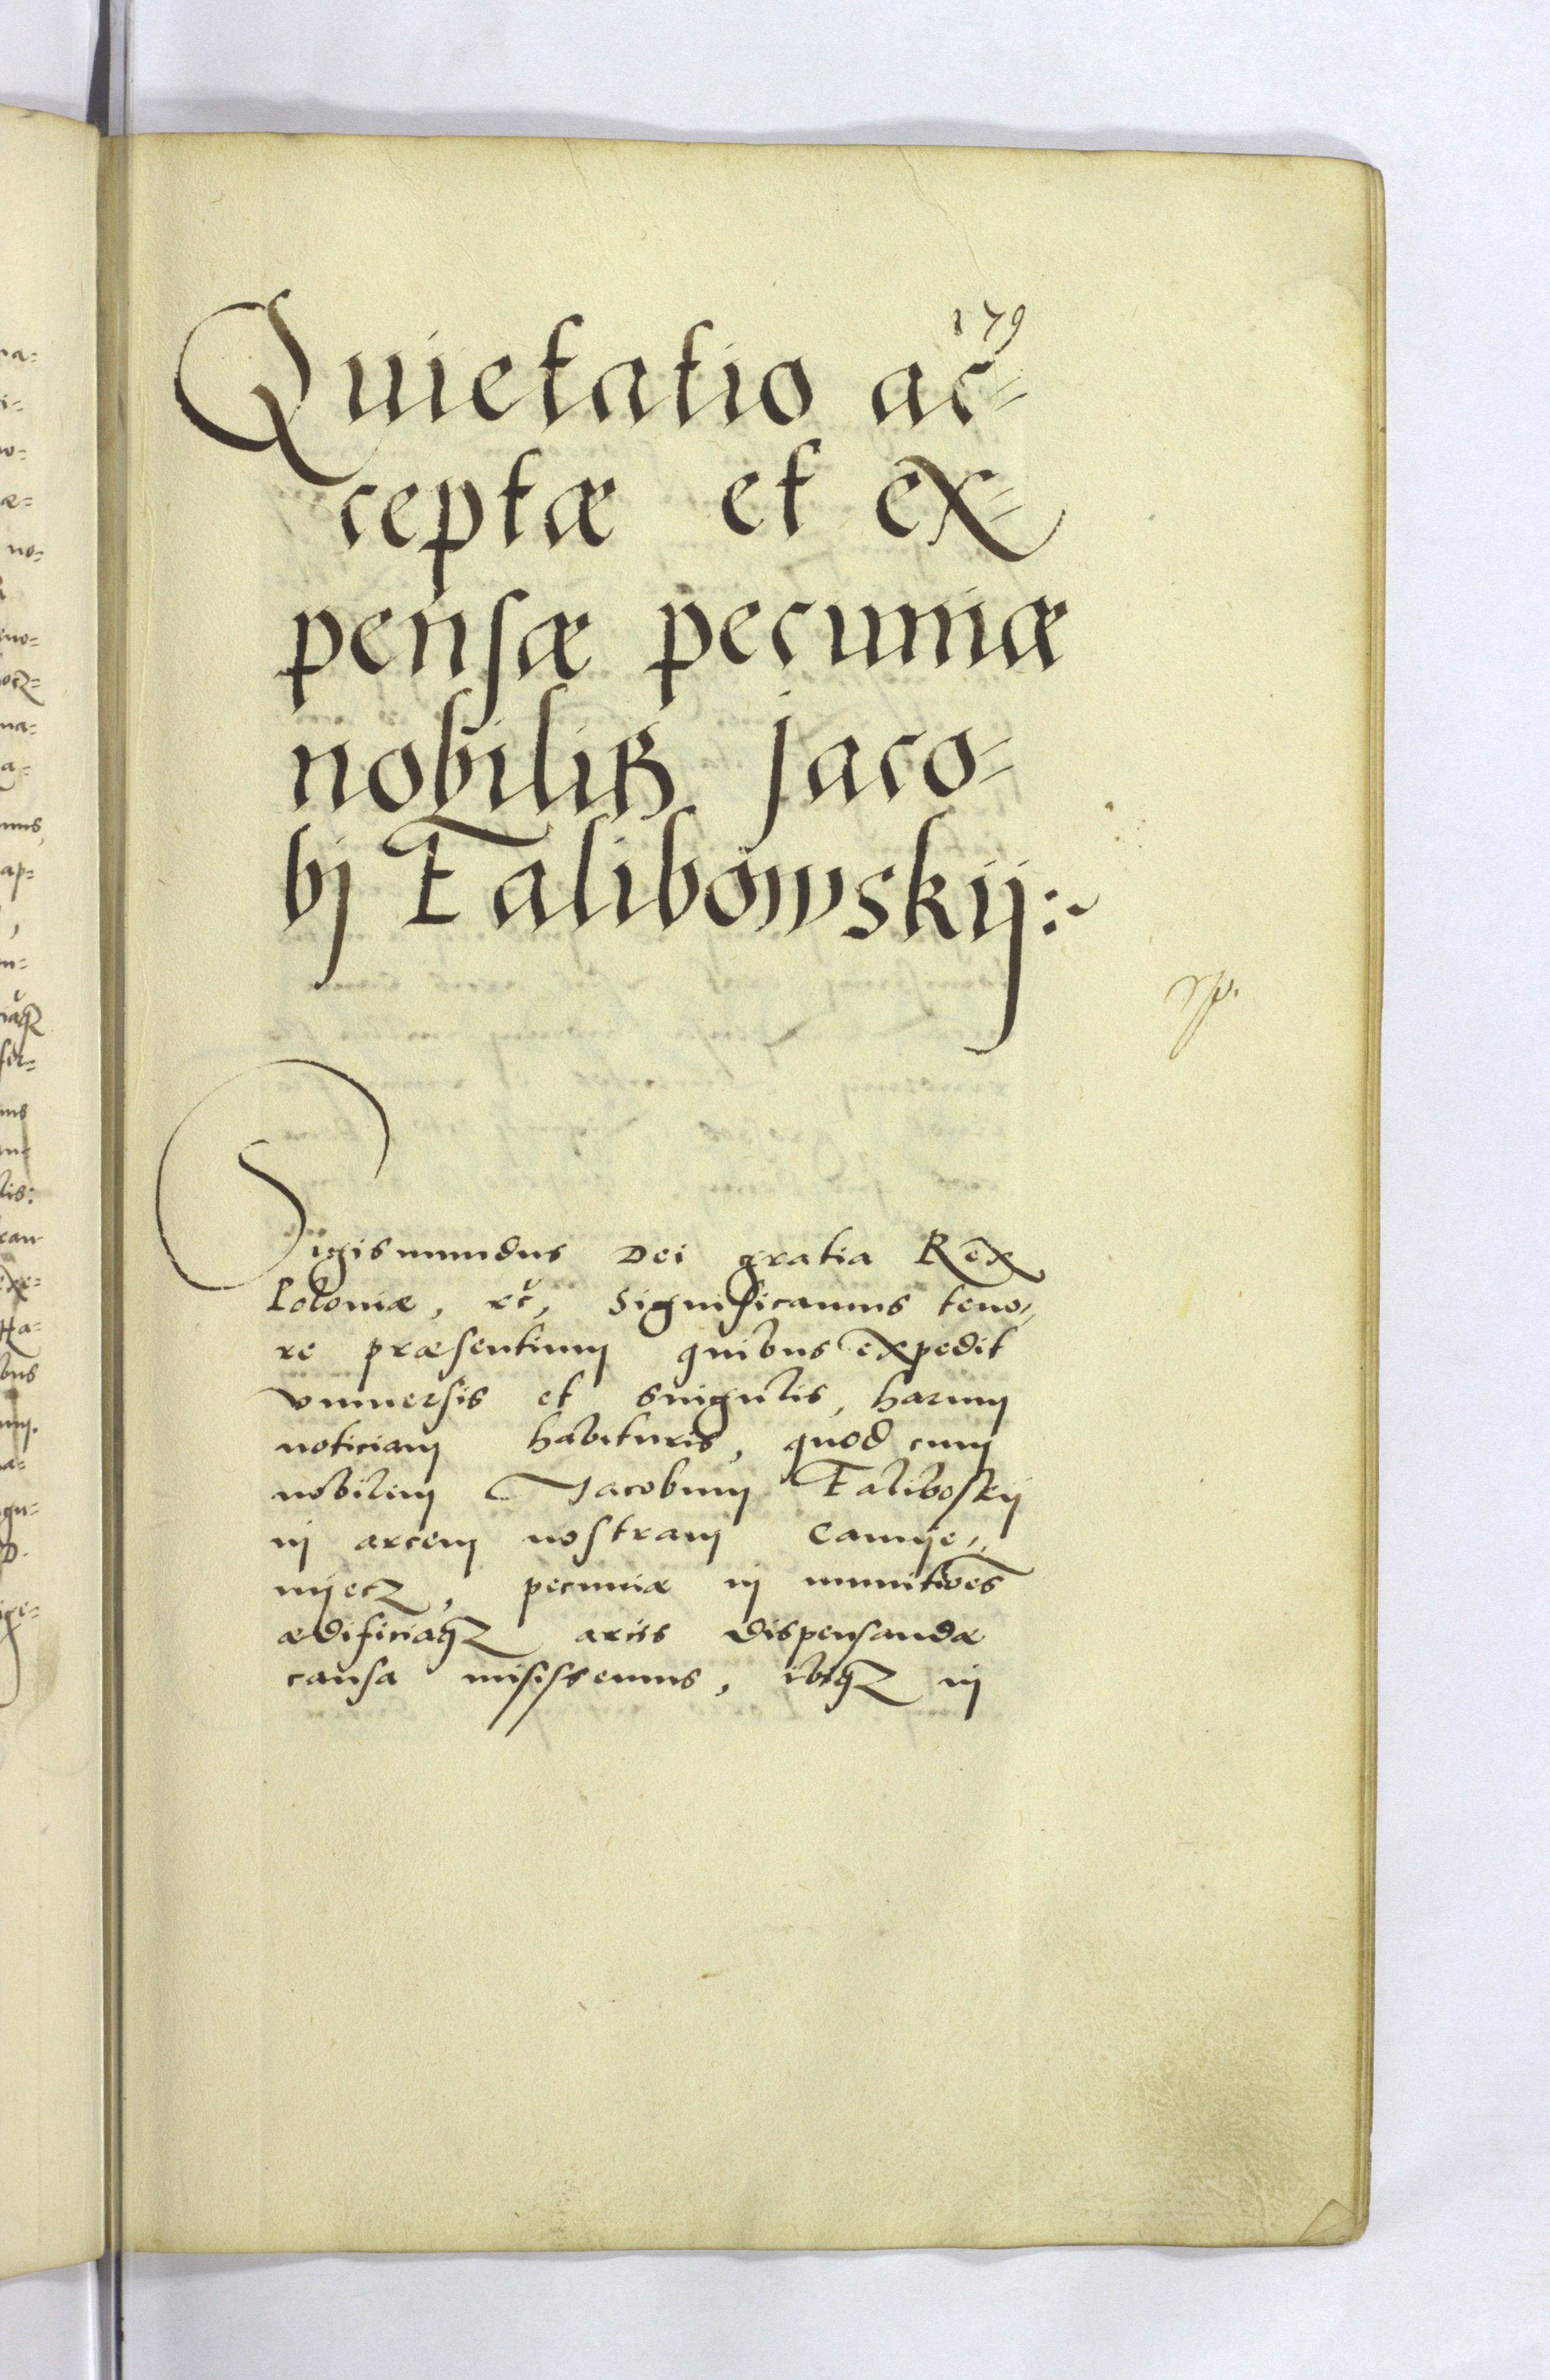 179
Quietatio ac=
ceptæ et ex=
pensæ pecuniæ
nobilis Jaco=
bj Falibowskij:~
Sigismundus Dei gratia Rex
Poloniæ, etc, Significamus teno=
re præsentium quibus expedit
vniuersis et singulis, harum
noticiam habituris, quod cum
nobilem Jacobum Faliboskij
in arcem nostram Camije=
nijecz, pecuniæ in munitiões
ædificiaqȝ arcis dispensandæ
causa misissemus, ibiqȝ in